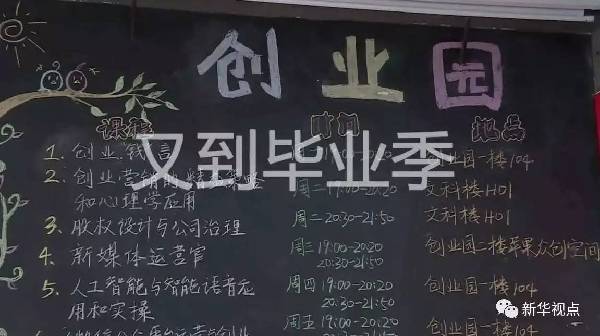 创业园
课程 时间 地点
又到毕业季
1. 创业 19:00-20:20 创业园一楼104
2. 创业营销的 周二19:00-20:20 文科楼H01
和心理学应用
3. 股权设计与公司治理 周二20:30-21:50 文科楼H01
4. 新媒体运营官 周三19:00-20:20 创业园二楼苹果众创空间
20:30-21:50
5. 人工智能与智能语音应 周四19:00-20:20 创业园一楼104
用和实操 20:30-21:50
周五19:00-20:20 创业园一楼104
新华视点